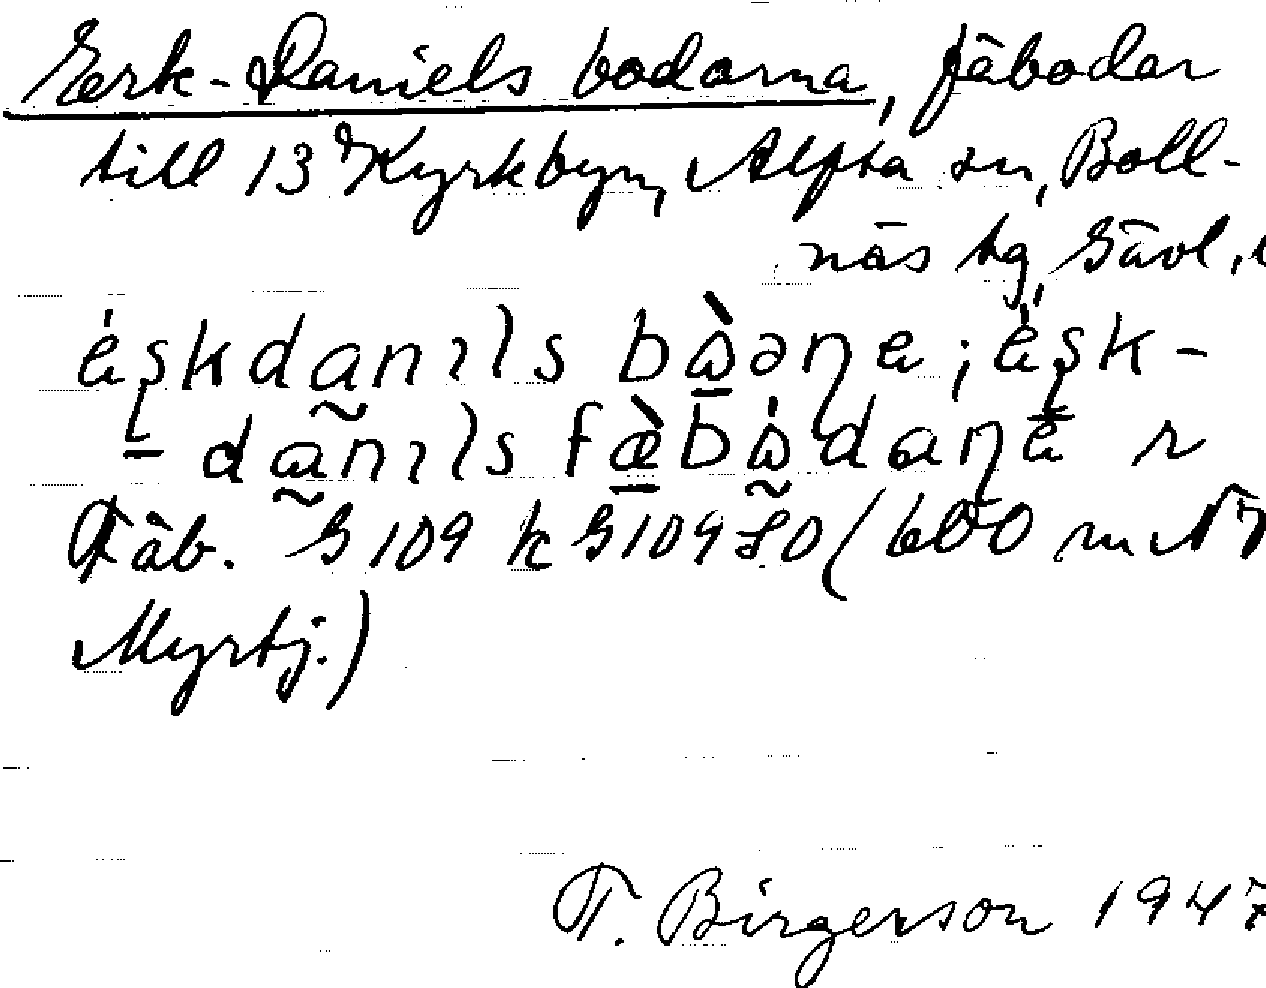 Erk-Daniels bodarna, fäbodar
till 13 Kyrkbyn, Alfta sn, Boll-
näs tg, Gävl. l
éşkdanıls bὰəņa; éşk-
-danıls fæ̀bὰdaņa r
Fäb. G 109 k G 109 SO (600 m NV
Myrtj.)
T. Birgerson 1947